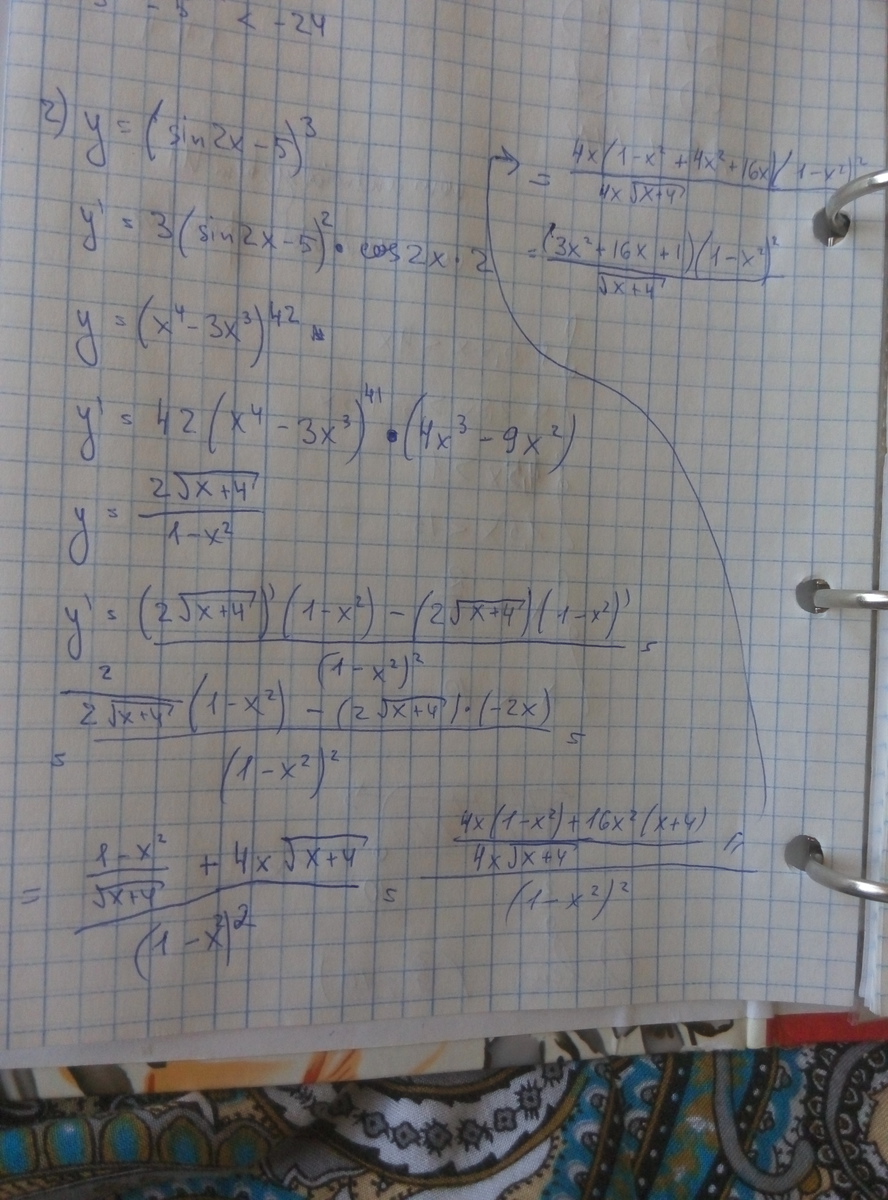 < -24
2) y = (sin2x - 5)³
y' = 3(sin2x - 5)² · cos2x · 2
y = (x⁴ - 3x³)⁴²
y' = 42(x⁴ - 3x³)⁴¹ · (4x³ - 9x²)
y = 2√(x+4) / (1-x²)
y' = ((2√(x+4))'(1-x²) - (2√(x+4))(1-x²)') / (1-x²)² =
= (2/(2√(x+4)) (1-x²) - (2√(x+4))·(-2x)) / (1-x²)² =
= ((1-x²)/√(x+4) + 4x√(x+4)) / (1-x²)² = ((4x(1-x²)+16x²(x+4)) / (4x√(x+4))) / (1-x²)² =
→ = 4x(1-x²+4x²+16x)(1-x²)² / (4x√(x+4))
= (3x²+16x+1)(1-x²)² / √(x+4)